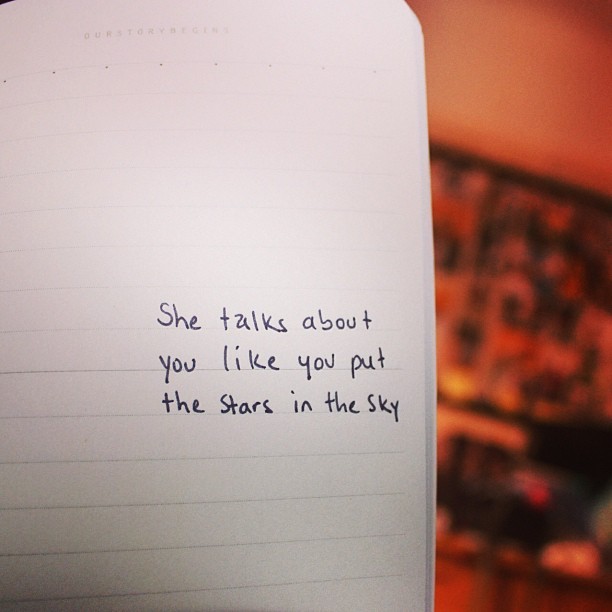 OURSTORYBEGINS
She talks about
you like you put
the stars in the sky